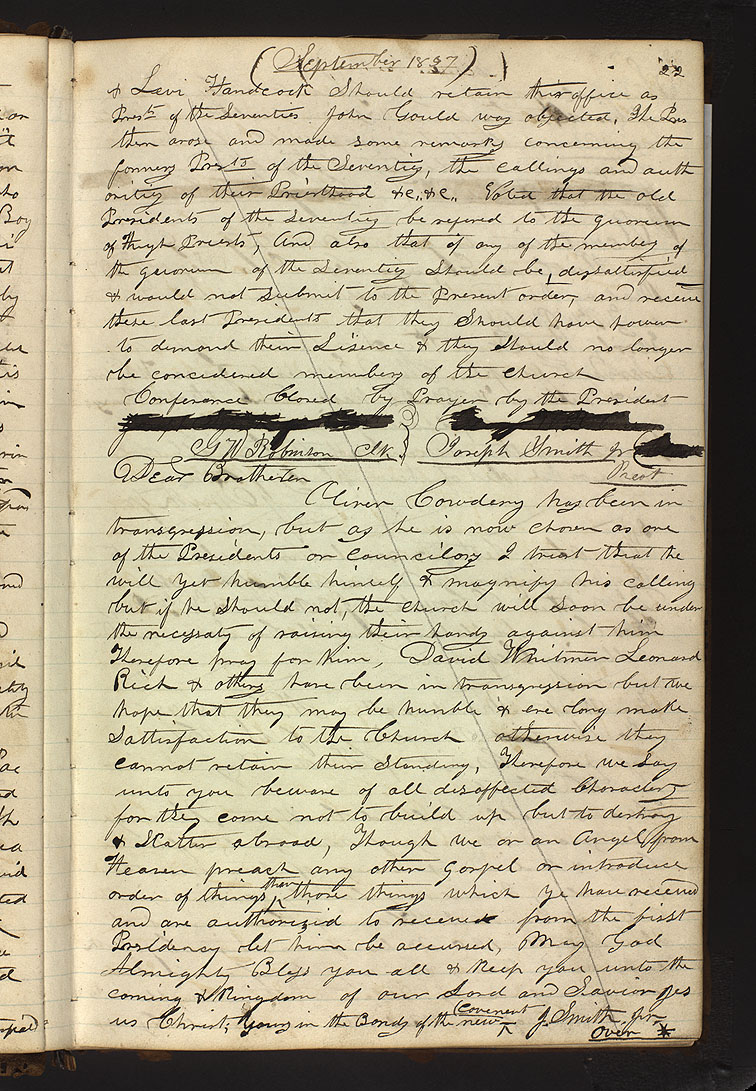 (September 1837) 22
& Levi Handcock Should retain their office as
Prest. of the Seventies John Gould was objected. The Pres
then arose and made some remarks concerning the
formers Prests of the Seventies, the callings and auth
orities of their Priesthood &c,, &c,, Voted that the old
Presidents of the Seventies be refered to the quorum
of High Priests, And also that of any of the members of
the quorum of the Seventies Should be, dissattisfied
& would not Submit to the Present order, and receive
these last Presidents that they Should have power
to demand their Lisence & they Should no longer
be concidered members of the church
Conference Closed by Prayer by the President
G W Robinson Clk. Joseph Smith Jr
Prest
Dear Brotheren
Oliver Cowdery has been in
transgression, but as he is now chosen as one
of the Presidents or councilors I trust that he
will yet humble himself & magnify his calling
but if he should not, the church will soon be under
the necessaty of raising their hands against him
Therefore pray for him, David Whitmer Leonard
Rich & others have been in transgression but we
hope that they may be humble & ere long make
Sattisfaction to the Church otherwise they
cannot retain their Standing, Therefore we Say
unto you beware of all disaffected Characters
for they come not to build up but to destroy
& Scatter abroad, Though we or an Angel from
Heaven preach any other Gospel or introduce
order of things than those things which ye have received
and are authorized to received from the first
Presidency let him be accursed, May God
Almighty Bless you all & keep you unto the
coming & kingdom of our Lord and Savior Jes
us Christ; Yours in the Bonds of the new Covenent J. Smith Jr
Over *